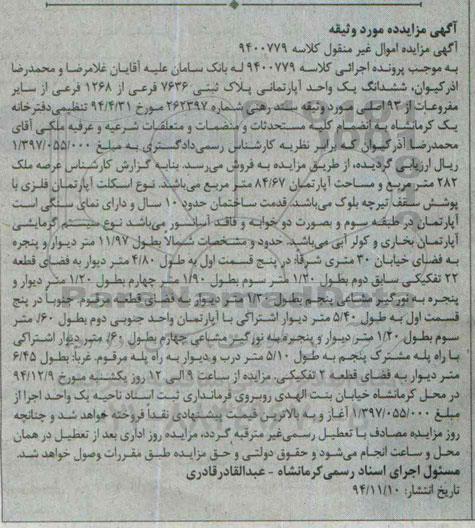 آگهی مزایدده مورد وثیقه
آگهی مزایده اموال غیر منقول کلاسه ۹۴۰۰۷۷۹
به موجب پرونده اجرائی کلاسه ۹۴۰۰۷۷۹ له بانک سامان علیه آقایان غلامرضا و محمدرضا
آذرکیوان، ششدانگ یک واحد آپارتمانی پلاک ثبتی ۷۶۳۶ فرعی از ۱۲۶۸ فرعی از سایر
مفروعات از ۹۳ اصلی مورد وثیقه سند رهنی شماره ۲۶۲۳۹۷ مورخ ۹۴/۴/۳۱ تنظیمی دفترخانه
یک کرمانشاه به انضمام کلیه مستحدثات و منضمات و متعلقات شرعیه و عرفیه ملکی آقای
محمدرضا آذرکیوان که برابر نظریه کارشناس رسمی دادگستری به مبلغ ۱/۳۹۷/۰۵۵/۰۰۰
ریال ارزیابی گردیده، از طریق مزایده به فروش می‌رسد. بنابه گزارش کارشناس عرصه ملک
۲۸۲ متر مربع و مساحت آپارتمان ۸۴/۶۷ متر مربع می‌باشد. نوع اسکلت آپارتمان فلزی با
پوشش سقف تیرچه بلوک می‌باشد. قدمت ساختمان حدود ۱۰ سال و دارای نمای سنگی است
آپارتمان در طبقه سوم و بصورت دو خوابه و فاقد آسانسور می‌باشد نوع سیستم گرمایشی
آپارتمان بخاری و کولر آبی می‌باشد. حدود و مشخصات شمالا بطول ۱۱/۹۷ متر دیوار و پنجره
به فضای خیابان ۳۰ متری شرقا: در پنج قسمت اول به طول ۴/۸۰ متر دیوار به فضای قطعه
۲۲ تفکیکی سابق دوم بطول ۱/۲۰ متر سوم بطول ۱/۹۰ متر چهارم بطول ۱/۲۰ متر دیوار و
پنجره به نورگیر مشاعی پنجم بطول ۱/۳۰ متر دیوار به فضای قطعه مرقوم. جنوبا در پنج
قسمت اول به طول ۵/۴۰ متر دیوار اشتراکی با آپارتمان واحد جنوبی دوم بطول ۶۰/. متر
سوم بطول ۱/۲۰ متر دیوار و پنجره به نورگیر مشاعی چهارم بطول ۶۰/. متر دیوار اشتراکی
با راه پله مشترک پنجم به طول ۵/۱۰ متر درب و دیوار به راه پله مرقوم. غربا: بطول ۶/۴۵
متر دیوار به فضای قطعه ۲ تفکیکی. مزایده از ساعت ۹ الی ۱۲ روز یکشنبه مورخ ۹۴/۱۲/۹
در محل کرمانشاه خیابان بنت الهدی روبروی فرمانداری ثبت اسناد ناحیه یک واحد اجرا از
مبلغ ۱/۳۹۷/۰۵۵/۰۰۰ آغاز و به بالاترین قیمت پیشنهادی نقدا فروخته خواهد شد و چنانچه
روز مزایده مصادف با تعطیل رسمی غیر مترقبه گردد، مزایده روز اداری بعد از تعطیل در همان
محل و ساعت انجام می‌شود و حقوق دولتی و حق مزایده طبق مقررات وصول خواهد شد.
مسئول اجرای اسناد رسمی کرمانشاه - عبدالقادر قادری
تاریخ انتشار: ۹۴/۱۱/۱۰